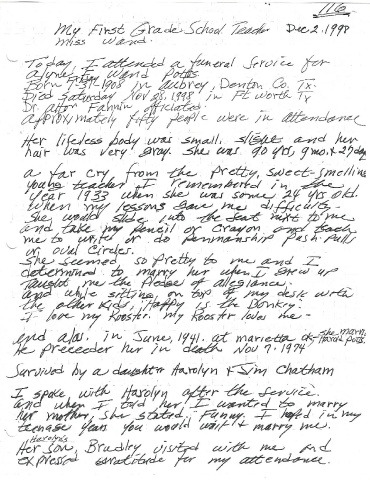 116
My First Grade School Teacher Dec 2, 1998
Miss Wand.
Today, I attended a funeral service for
Wand Potts
Born 1908 in Aubrey, Denton Co. Tx.
Died Saturday Nov 28, 1998 in Ft Worth Tx
Dr. officiated.
approximately fifty people were in attendance
Her lifeless body was small, slight and her
hair was very gray. She was 90 yrs, 9 mo. & 27 days
a far cry from the pretty, sweet-smelling
young teacher I remembered in the
year 1933 when she was some 24 yrs old.
When my lessons gave me difficulty
She would slide into the seat next to me
and take my pencil or crayon and teach
me to write or do penmanship Push-Pulls
or oval circles.
She seemed so pretty to me and I
determined to marry her when I grew up
Taught me the Pledge of allegiance.
and while sitting on top of my desk with
the other kids, Happy is the Donkey.
I love my Rooster, my Rooster loves me -
end alas. in June, 1941. at marietta ok she marri.
Harold Potts.
He preceeded her in death Nov 7, 1974
Survived by a daughter Harolyn & Jim Chatham
I spoke with Harolyn after the service.
and when I told her I wanted to marry
her mother, she stated, Funny. I hoped in my
teenage years you would wait & marry me.
Harolyn's
Her son, Bradley visited with me and
expressed gratitude for my attendance.